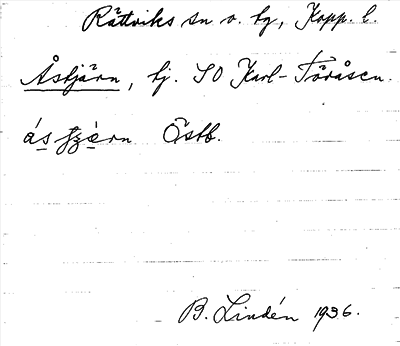 Rättviks sn o. tg, Kopp. l.
Åstjärn, tj. SO Karl-Toråsen.
Östb.
B. Lindén 1936.